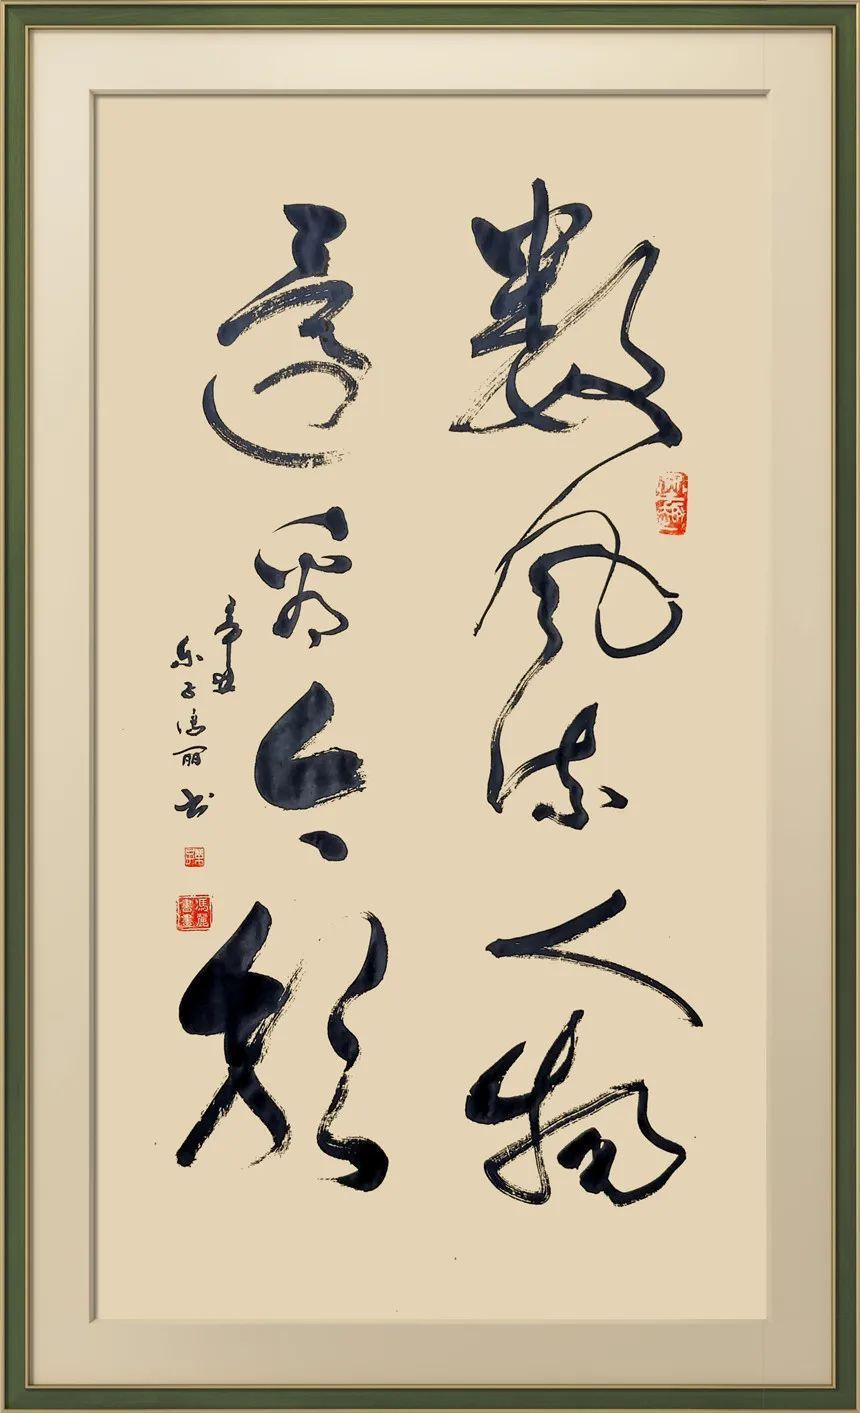 数风流人物
还看今朝
辛丑
乐子冯丽书
馮麗書畫